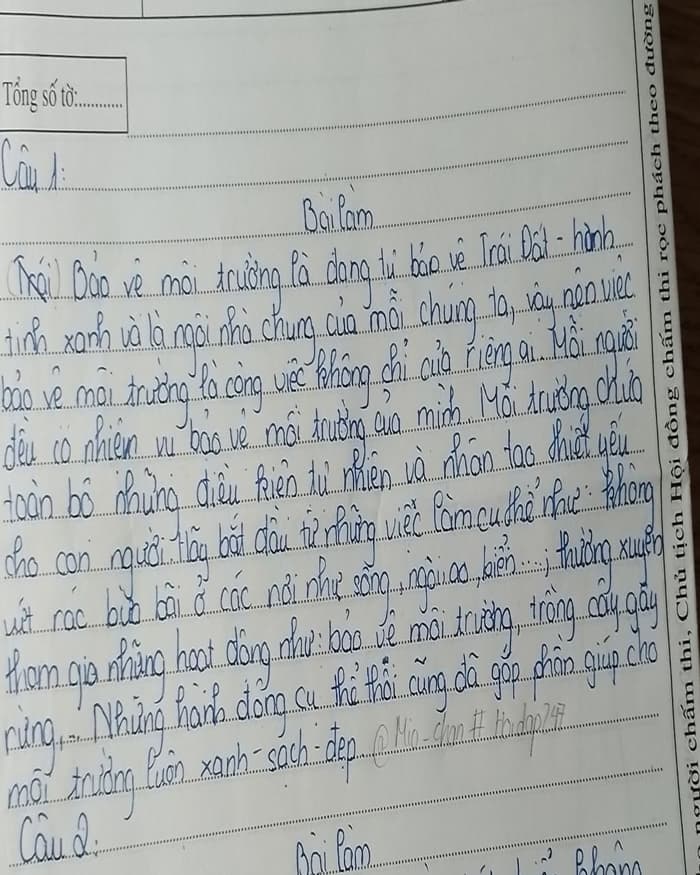 Tổng số tờ:............
Câu 1:
Bài làm
(Trái) Bảo vệ môi trường là đang tự bảo vệ Trái Đất - hành
tinh xanh và là ngôi nhà chung của mỗi chúng ta, vậy nên việc
bảo vệ môi trường là công việc không chỉ của riêng ai. Mỗi người
đều có nhiệm vụ bảo vệ môi trường của mình. Môi trường chứa
toàn bộ những điều kiện tự nhiên và nhân tạo thiết yếu
cho con người. Hãy bắt đầu từ những việc làm cụ thể như: không
vứt rác bừa bãi ở các nơi như sông, ngòi, ao, biển...; thường xuyên
tham gia những hoạt động như: bảo vệ môi trường, trồng cây gây
rừng,... Những hành động cụ thể thôi cũng đã góp phần giúp cho
môi trường luôn xanh - sạch - đẹp @Min-chan # Hoidap247
Câu 2:
Bài làm
không
người chấm thi, Chủ tịch Hội đồng chấm thi rọc phách theo đường